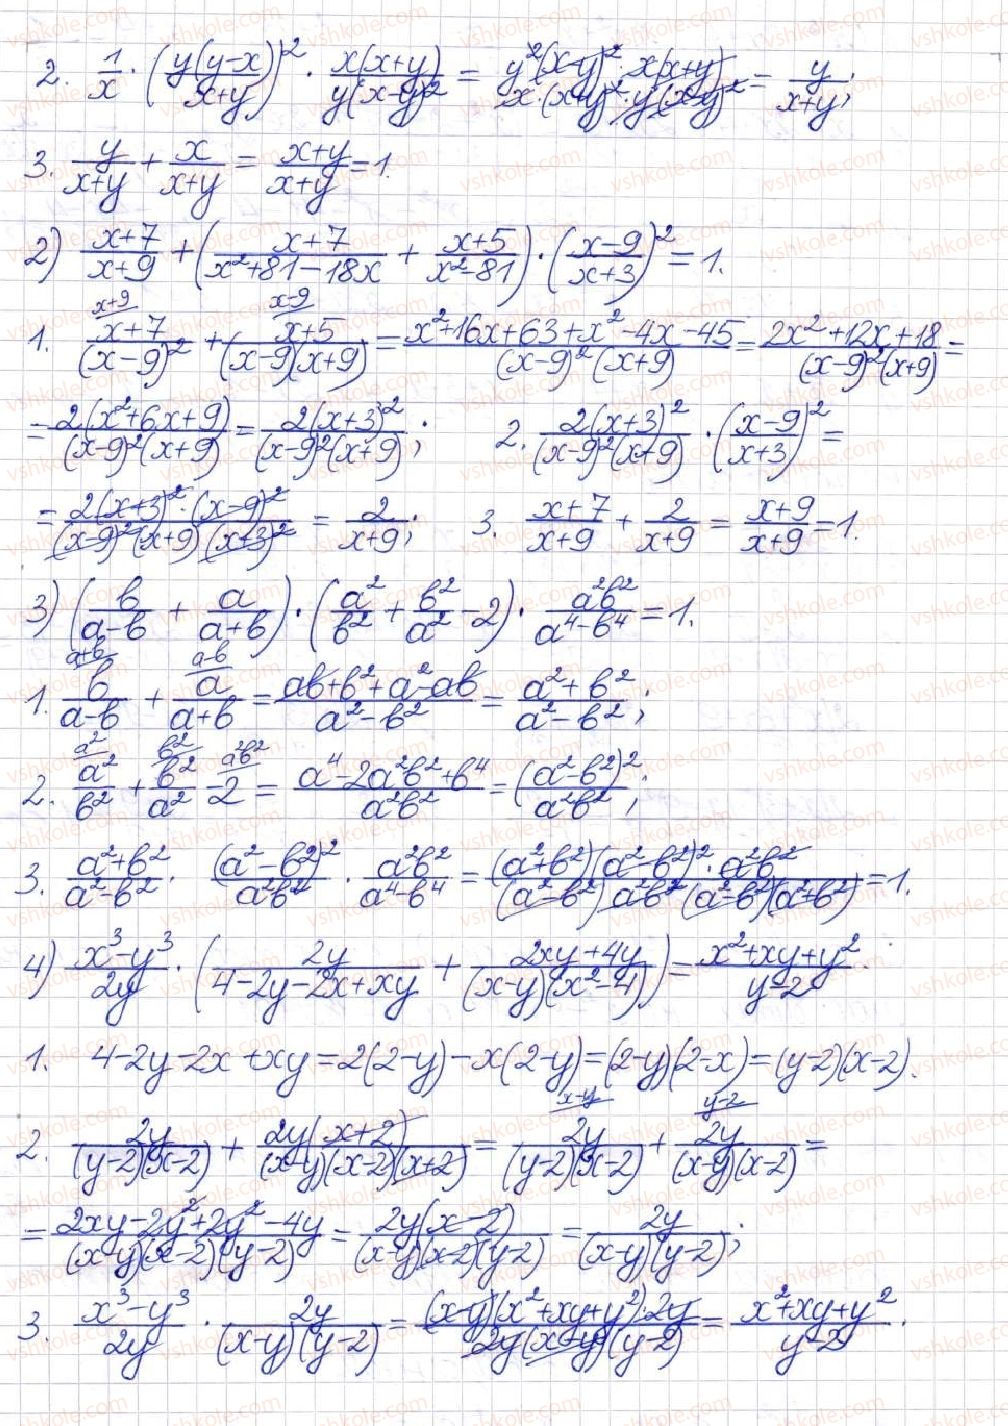 2. 1/x · (y(y-x)/(x+y))² · x(x+y)/(y(x-y)²) = y²(x-y)²·x(x+y)/(x·(x+y)²·y(x-y)²) = y/(x+y);
3. y/(x+y) + x/(x+y) = (x+y)/(x+y) = 1.
2) (x+7)/(x+9) + ((x+7)/(x²+81-18x) + (x+5)/(x²-81)) · ((x-9)/(x+3))² = 1.
x+9 x-9
1. (x+7)/(x-9)² + (x+5)/((x-9)(x+9)) = (x²+16x+63+x²-4x-45)/((x-9)²(x+9)) = (2x²+12x+18)/((x-9)²(x+9)) =
= 2(x²+6x+9)/((x-9)²(x+9)) = 2(x+3)²/((x-9)²(x+9)); 2. 2(x+3)²/((x-9)²(x+9)) · ((x-9)/(x+3))² =
= 2(x+3)²·(x-9)²/((x-9)²(x+9)(x+3)²) = 2/(x+9); 3. (x+7)/(x+9) + 2/(x+9) = (x+9)/(x+9) = 1.
3) (b/(a-b) + a/(a+b)) · (a²/b² + b²/a² - 2) · a²b²/(a⁴-b⁴) = 1.
a+b a-b
1. b/(a-b) + a/(a+b) = (ab+b²+a²-ab)/(a²-b²) = (a²+b²)/(a²-b²);
a² b² a²b²
2. a²/b² + b²/a² - 2 = (a⁴-2a²b²+b⁴)/(a²b²) = (a²-b²)²/(a²b²);
3. (a²+b²)/(a²-b²) · (a²-b²)²/(a²b²) · a²b²/(a⁴-b⁴) = (a²+b²)(a²-b²)²·a²b²/((a²-b²) a²b² (a²-b²)(a²+b²)) = 1.
4) (x³-y³)/2y · (2y/(4-2y-2x+xy) + (2xy+4y)/((x-y)(x²-4))) = (x²+xy+y²)/(y-2).
1. 4-2y-2x+xy = 2(2-y)-x(2-y) = (2-y)(2-x) = (y-2)(x-2).
x-y y-2
2. 2y/((y-2)(x-2)) + 2y(x+2)/((x-y)(x-2)(x+2)) = 2y/((y-2)(x-2)) + 2y/((x-y)(x-2)) =
= (2xy-2y²+2y²-4y)/((x-y)(x-2)(y-2)) = 2y(x-2)/((x-y)(x-2)(y-2)) = 2y/((x-y)(y-2));
3. (x³-y³)/2y · 2y/((x-y)(y-2)) = (x-y)(x²+xy+y²)·2y/(2y(x-y)(y-2)) = (x²+xy+y²)/(y-2).